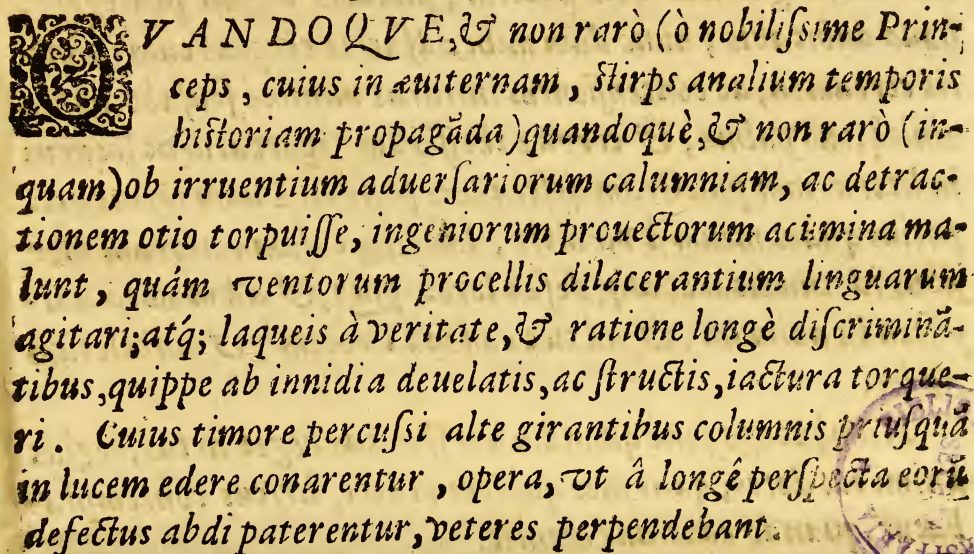 QVANDOQVE, & non rarò (ò nobilissime Prin-
ceps, cuius in æuiternam, stirps analium temporis
historiam propagãda) quandoquè, & non rarò (in-
quam) ob irruentium aduersariorum calumniam, ac detrac-
tionem otio torpuisse, ingeniorum prouectorum acumina ma-
lunt, quám ventorum procellis dilacerantium linguarum
agitari; atq́; laqueis à veritate, & ratione longè discriminã-
tibus, quippe ab innidia deuelatis, ac structis, iactura torque-
ri. Cuius timore percussi alte girantibus columnis priusquã
in lucem edere conarentur, opera, vt â longê perspecta eorũ
defectus abdi paterentur, veteres perpendebant.